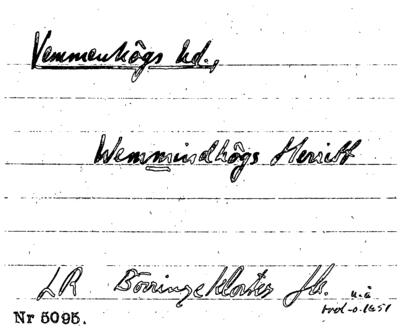 Vemmenhögs hd.,
Wemmindhögs Herrett
LR Börringekloster Jb. u.å
Nr 5095.